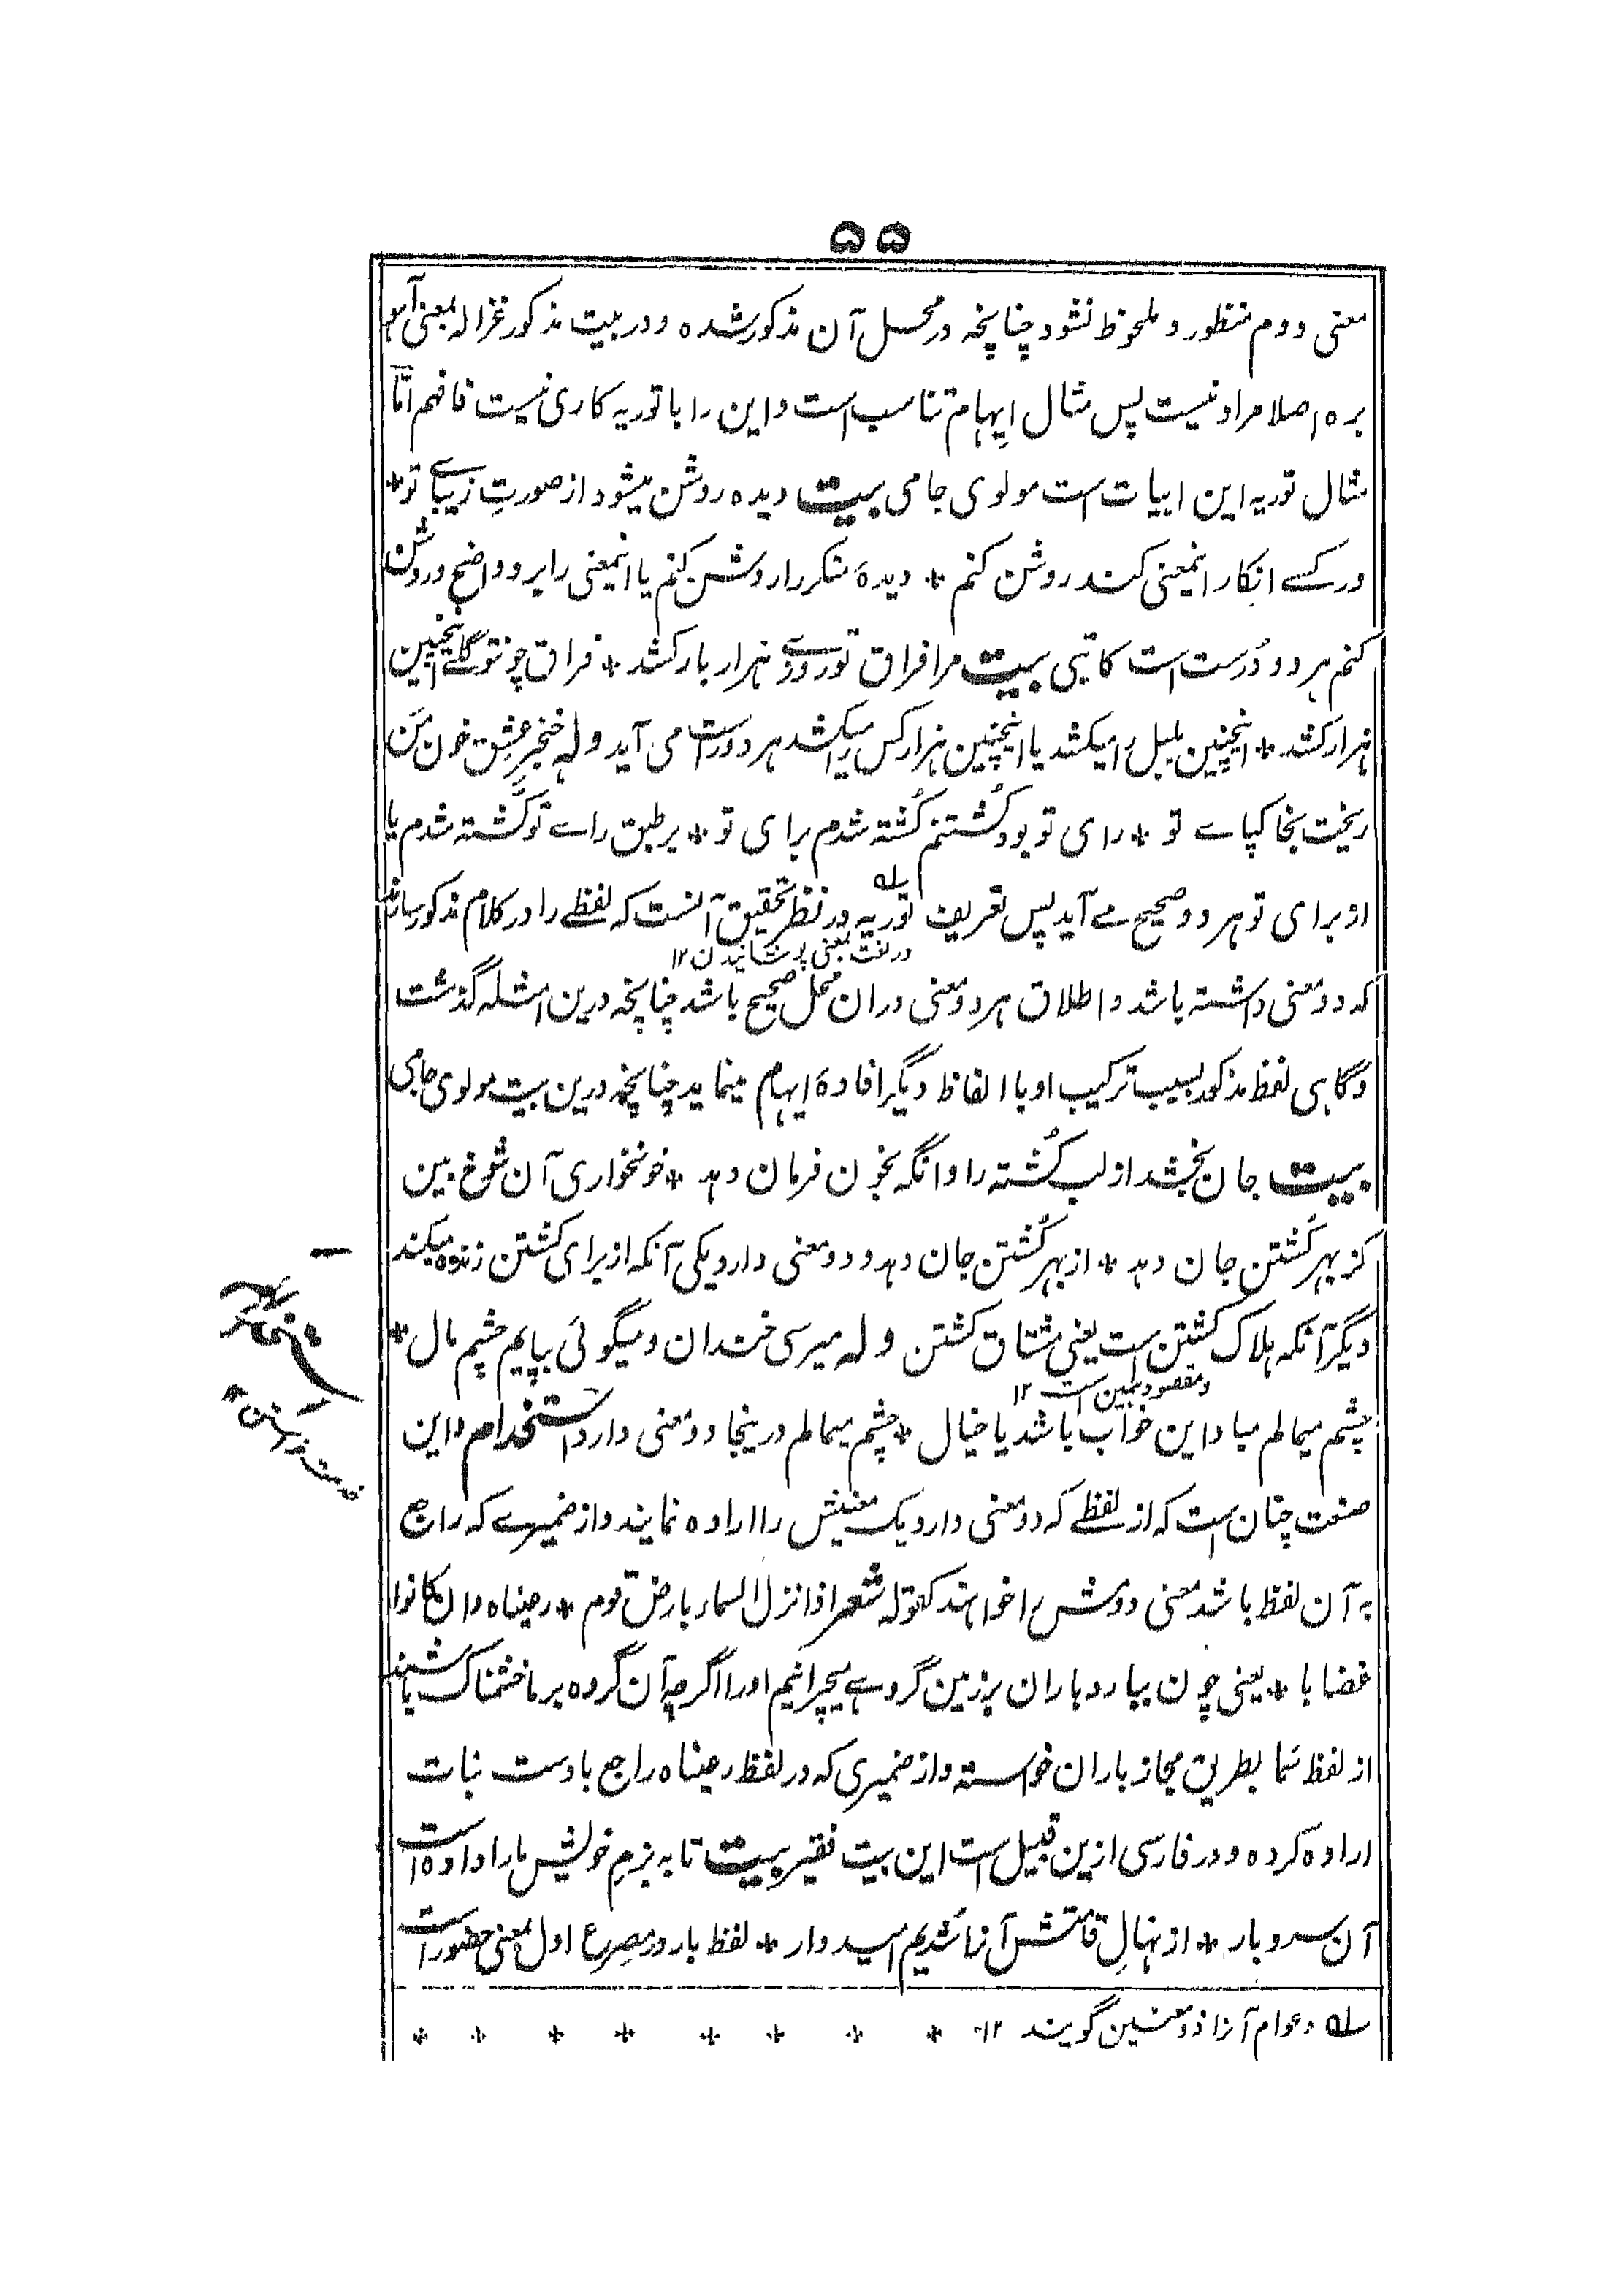 ۵۵
معنی دوم منظور و ملحوظ نشود چنانچه در محل آن مذکور شده و در بیت مذکور غزاله بمعنی آهو
بره اصلا مراد نیست پس مثال ایهام تناسب است و این را با توریه کاری نیست فافهم امّا
مثال توریه این ابیات است مولوی جامی بیت دیده روشن میشود از صورتِ زیبای تو *
ور کسے انکار اینمعنی کند روشن کنم * دیدهٔ منکر را روشن کنم یا اینمعنی را برو واضح و روشن
کنم هر دو دُرست است کاتبی بیت مرا فراق تو روزے هزار بار کشد * فراق چو تو گلے اینچنین
هزار کشد * اینچنین بلبل را میکشد یا اینچنین هزار کس را میکشد هر دو راست می آید وله خنجرِ عشق خون من
ریخت بخاکپاے تو * رای تو بود کُشتنم کُشته شدم برای تو * بر طبق راے تو کُشته شدم یا
از برای تو هر دو صحیح مے آید پس تعریف توریه در نظر تحقیق آنست که لفظے را در کلام مذکور سازند
در لغت بمعنی پوشانیدن ۱۲
که دو معنی داشته باشد و اطلاق هر دو معنی دران محل صحیح باشد چنانچه درین امثله گذشت
و گاهی لفظ مذکور بسبب ترکیب او با الفاظ دیگر افادهٔ ایهام مینماید چنانچه درین بیت مولوی جامی
بیت جان بخشد از لب کُشته را وانگه بخون فرمان دهد * خونخواری آن شوخ بین
کز بهر کُشتن جان دهد * از بهر کُشتن جان دهد و دو معنی دارد یکی آنکه از برای کشتن زنده میکند
دیگر آنکه هلاک کشتن است یعنی مشتاق کشتن وله میرسی خندان و میگوئی بپایم چشم مال *
و مقصود همین است ۱۲
چشم میمالم مبادا این خواب باشد یا خیال * چشم میمالم درینجا دو معنی دارد استخدام و این
صنعت چنان است که از لفظے که دو معنی دارد یک معنیش را اراده نمایند و از ضمیرے که راجع
به آن لفظ باشد معنی دومش را خواهند کقوله شعر اذا نزل السماء بارض قوم * رعیناه و ان کانوا
غضابا * یعنی چون ببارد باران بر زمین گروهے میچرانیم او را اگرچه آن گروه بر ما خشمناک باشند
از لفظ سَما بطریق مجاز باران خواسته و از ضمیری که در لفظ رعیناه راجع باوست نبات
اراده کرده و در فارسی ازین قبیل است این بیت فقیر بیت تا به بزمِ خویش ما را داده است
آن سرو بار * از نهالِ قامتش آنرا شدیم امیدوار * لفظ بار در مصرع اول بمعنی حضور است
سله وعوام آنرا ذومعنیین گویند ۱۲ * * * * * * * *